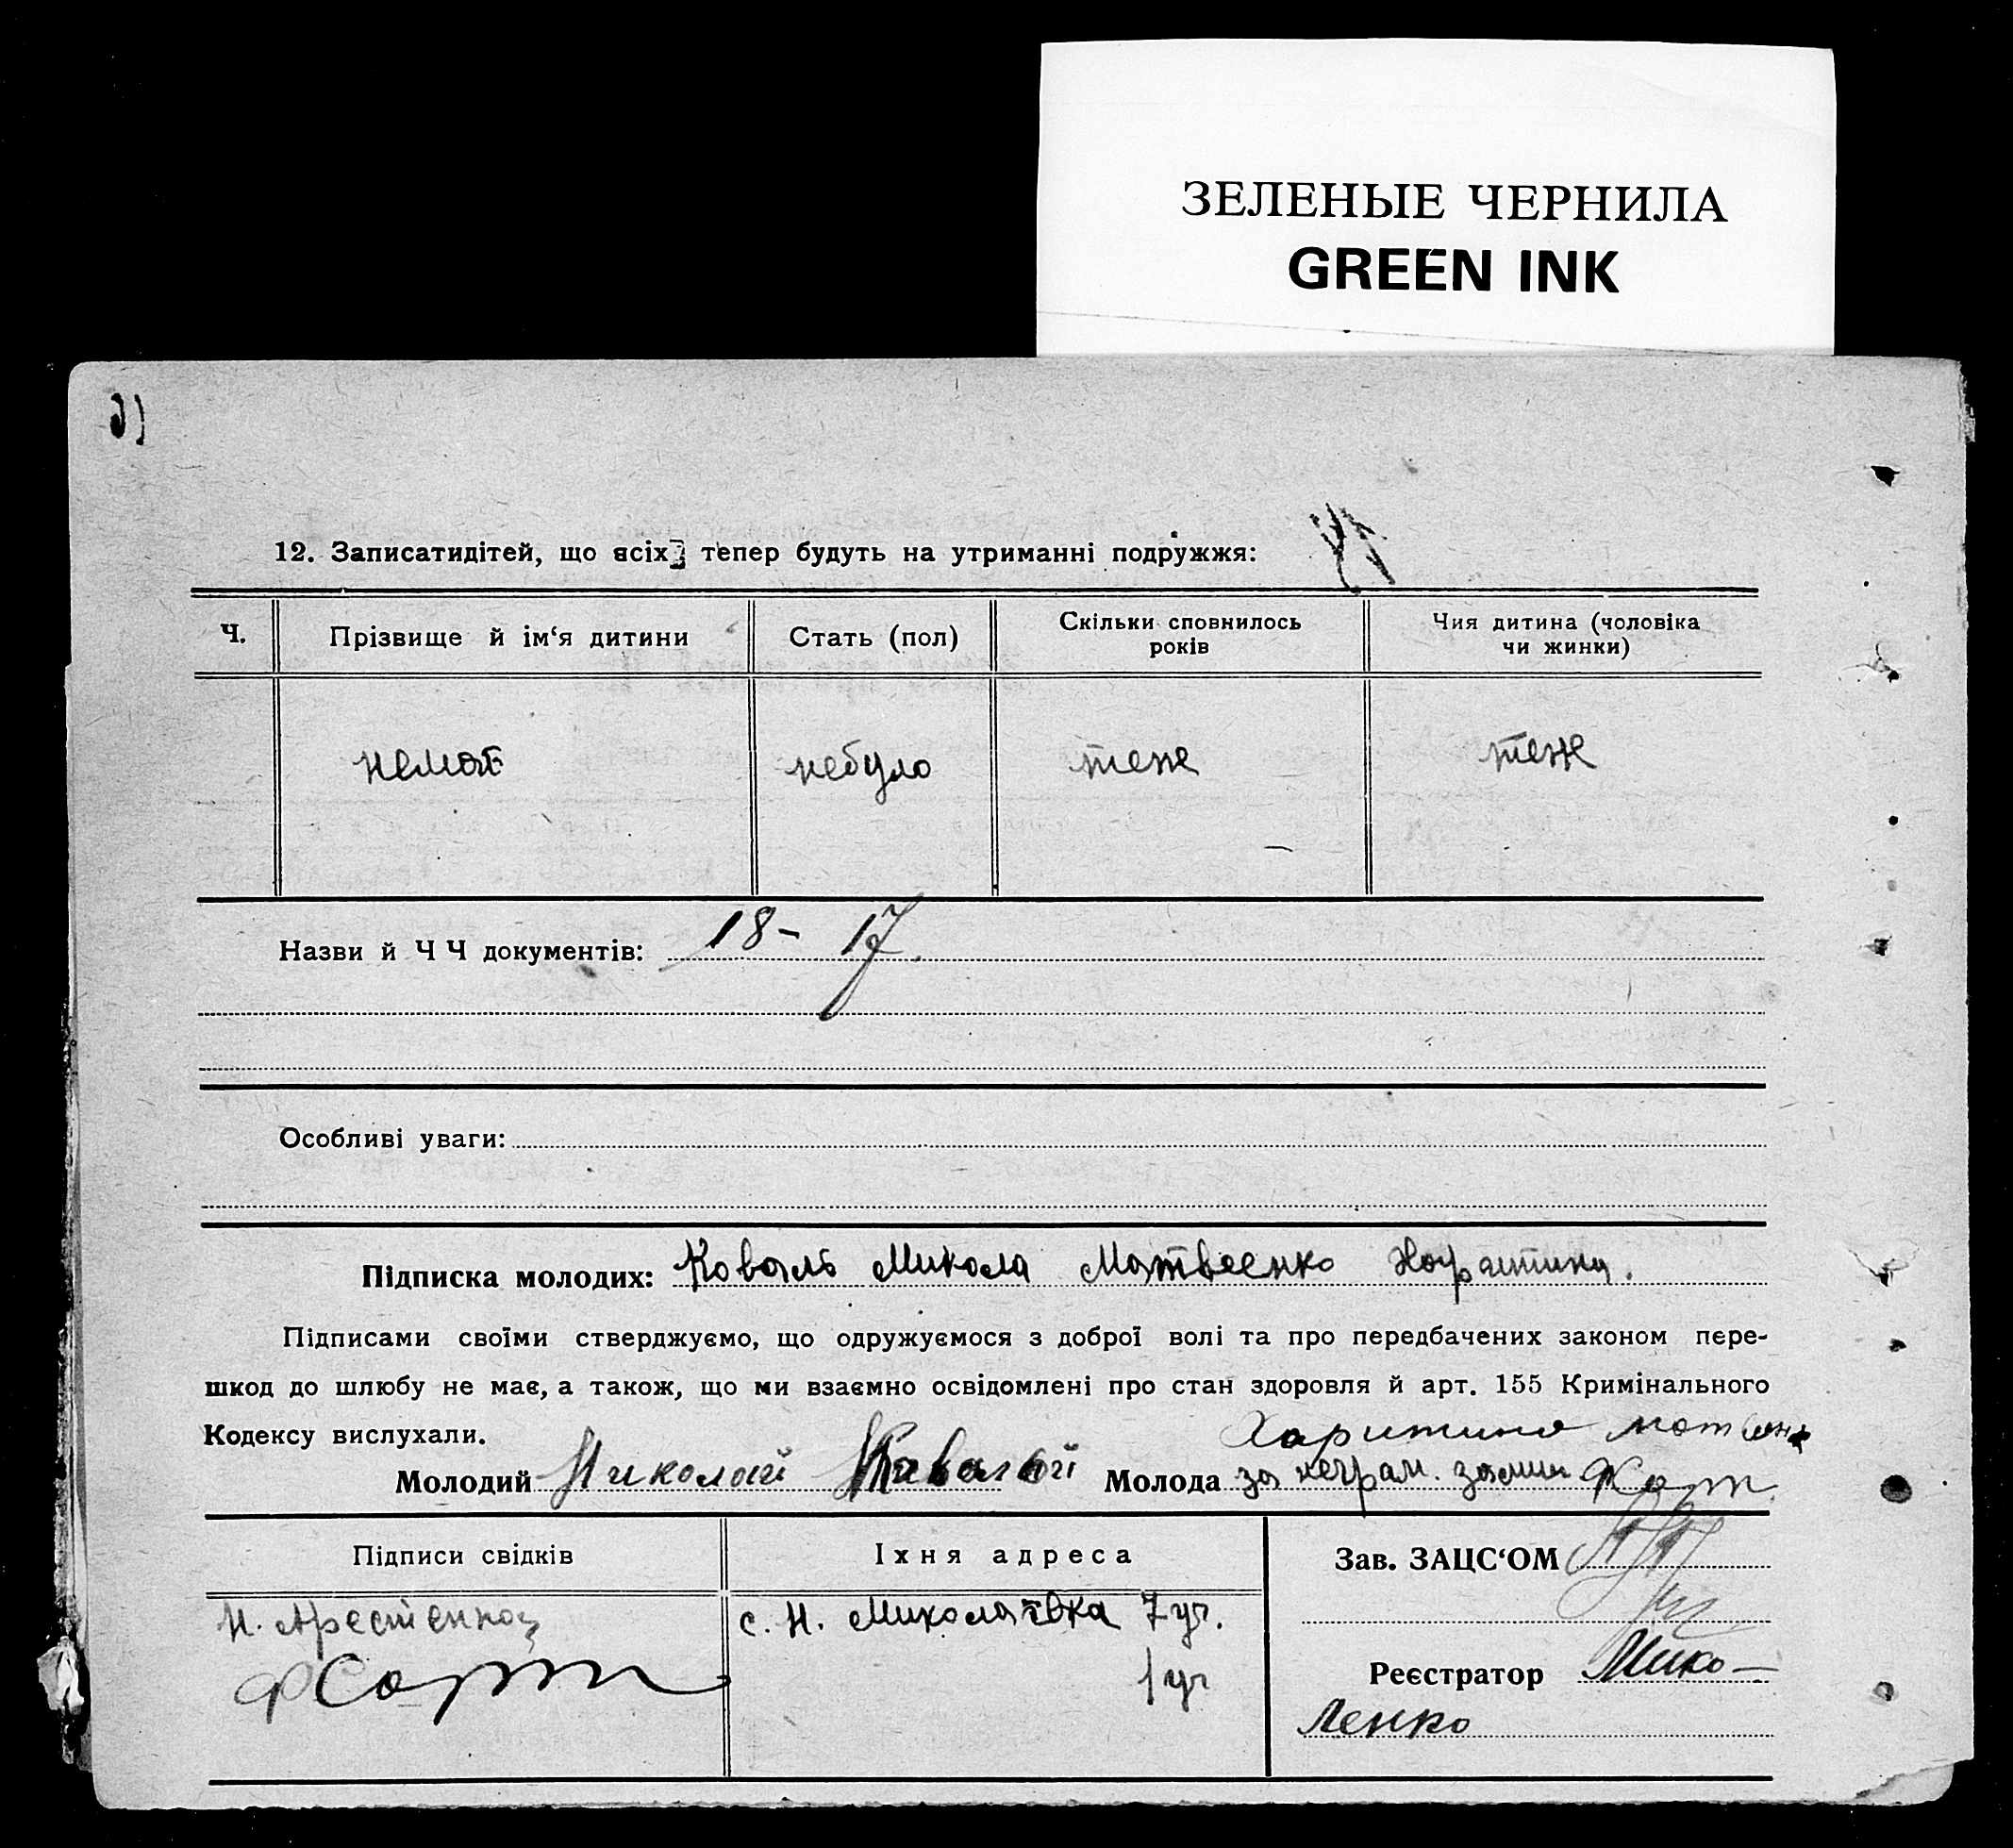 ЗЕЛЕНЫЕ ЧЕРНИЛА
GREEN INK
12. Записатидітей, що всіх тепер будуть на утриманні подружжя:
Ч.
Прізвище й ім‘я дитини
Стать (пол)
Скільки сповнилось
років
Чия дитина (чоловіка
чи жинки)
немає
небуло
теже
теже
Назви й Ч Ч документів: 18 – 17
Особливі уваги:
Підписка молодих: Коваль Микола Матвеенко
Підписами своїми стверджуємо, що одружуємося з доброї волі та про передбачених законом пере-
шкод до шлюбу не має, а також, що ми взаємно освідомлені про стан здоровля й арт. 155 Кримінального
Кодексу вислухали.
Харитина
Молодий Николай Молода за неграм.
Підписи свідків
Їхня адреса
Зав. ЗАЦС‘ОМ
с. Н. Миколаївка 7 уч.
1 уч
Реєстратор Мико–
ленко